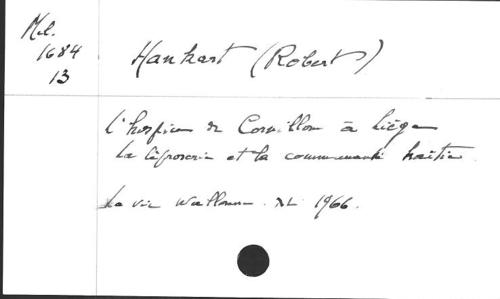 Mél.
1684
13
Hankart (Robert)
L'hospice de Cornillon à Liège
La léproserie et la communauté haitie
La vie Wallonne. XL 1966.